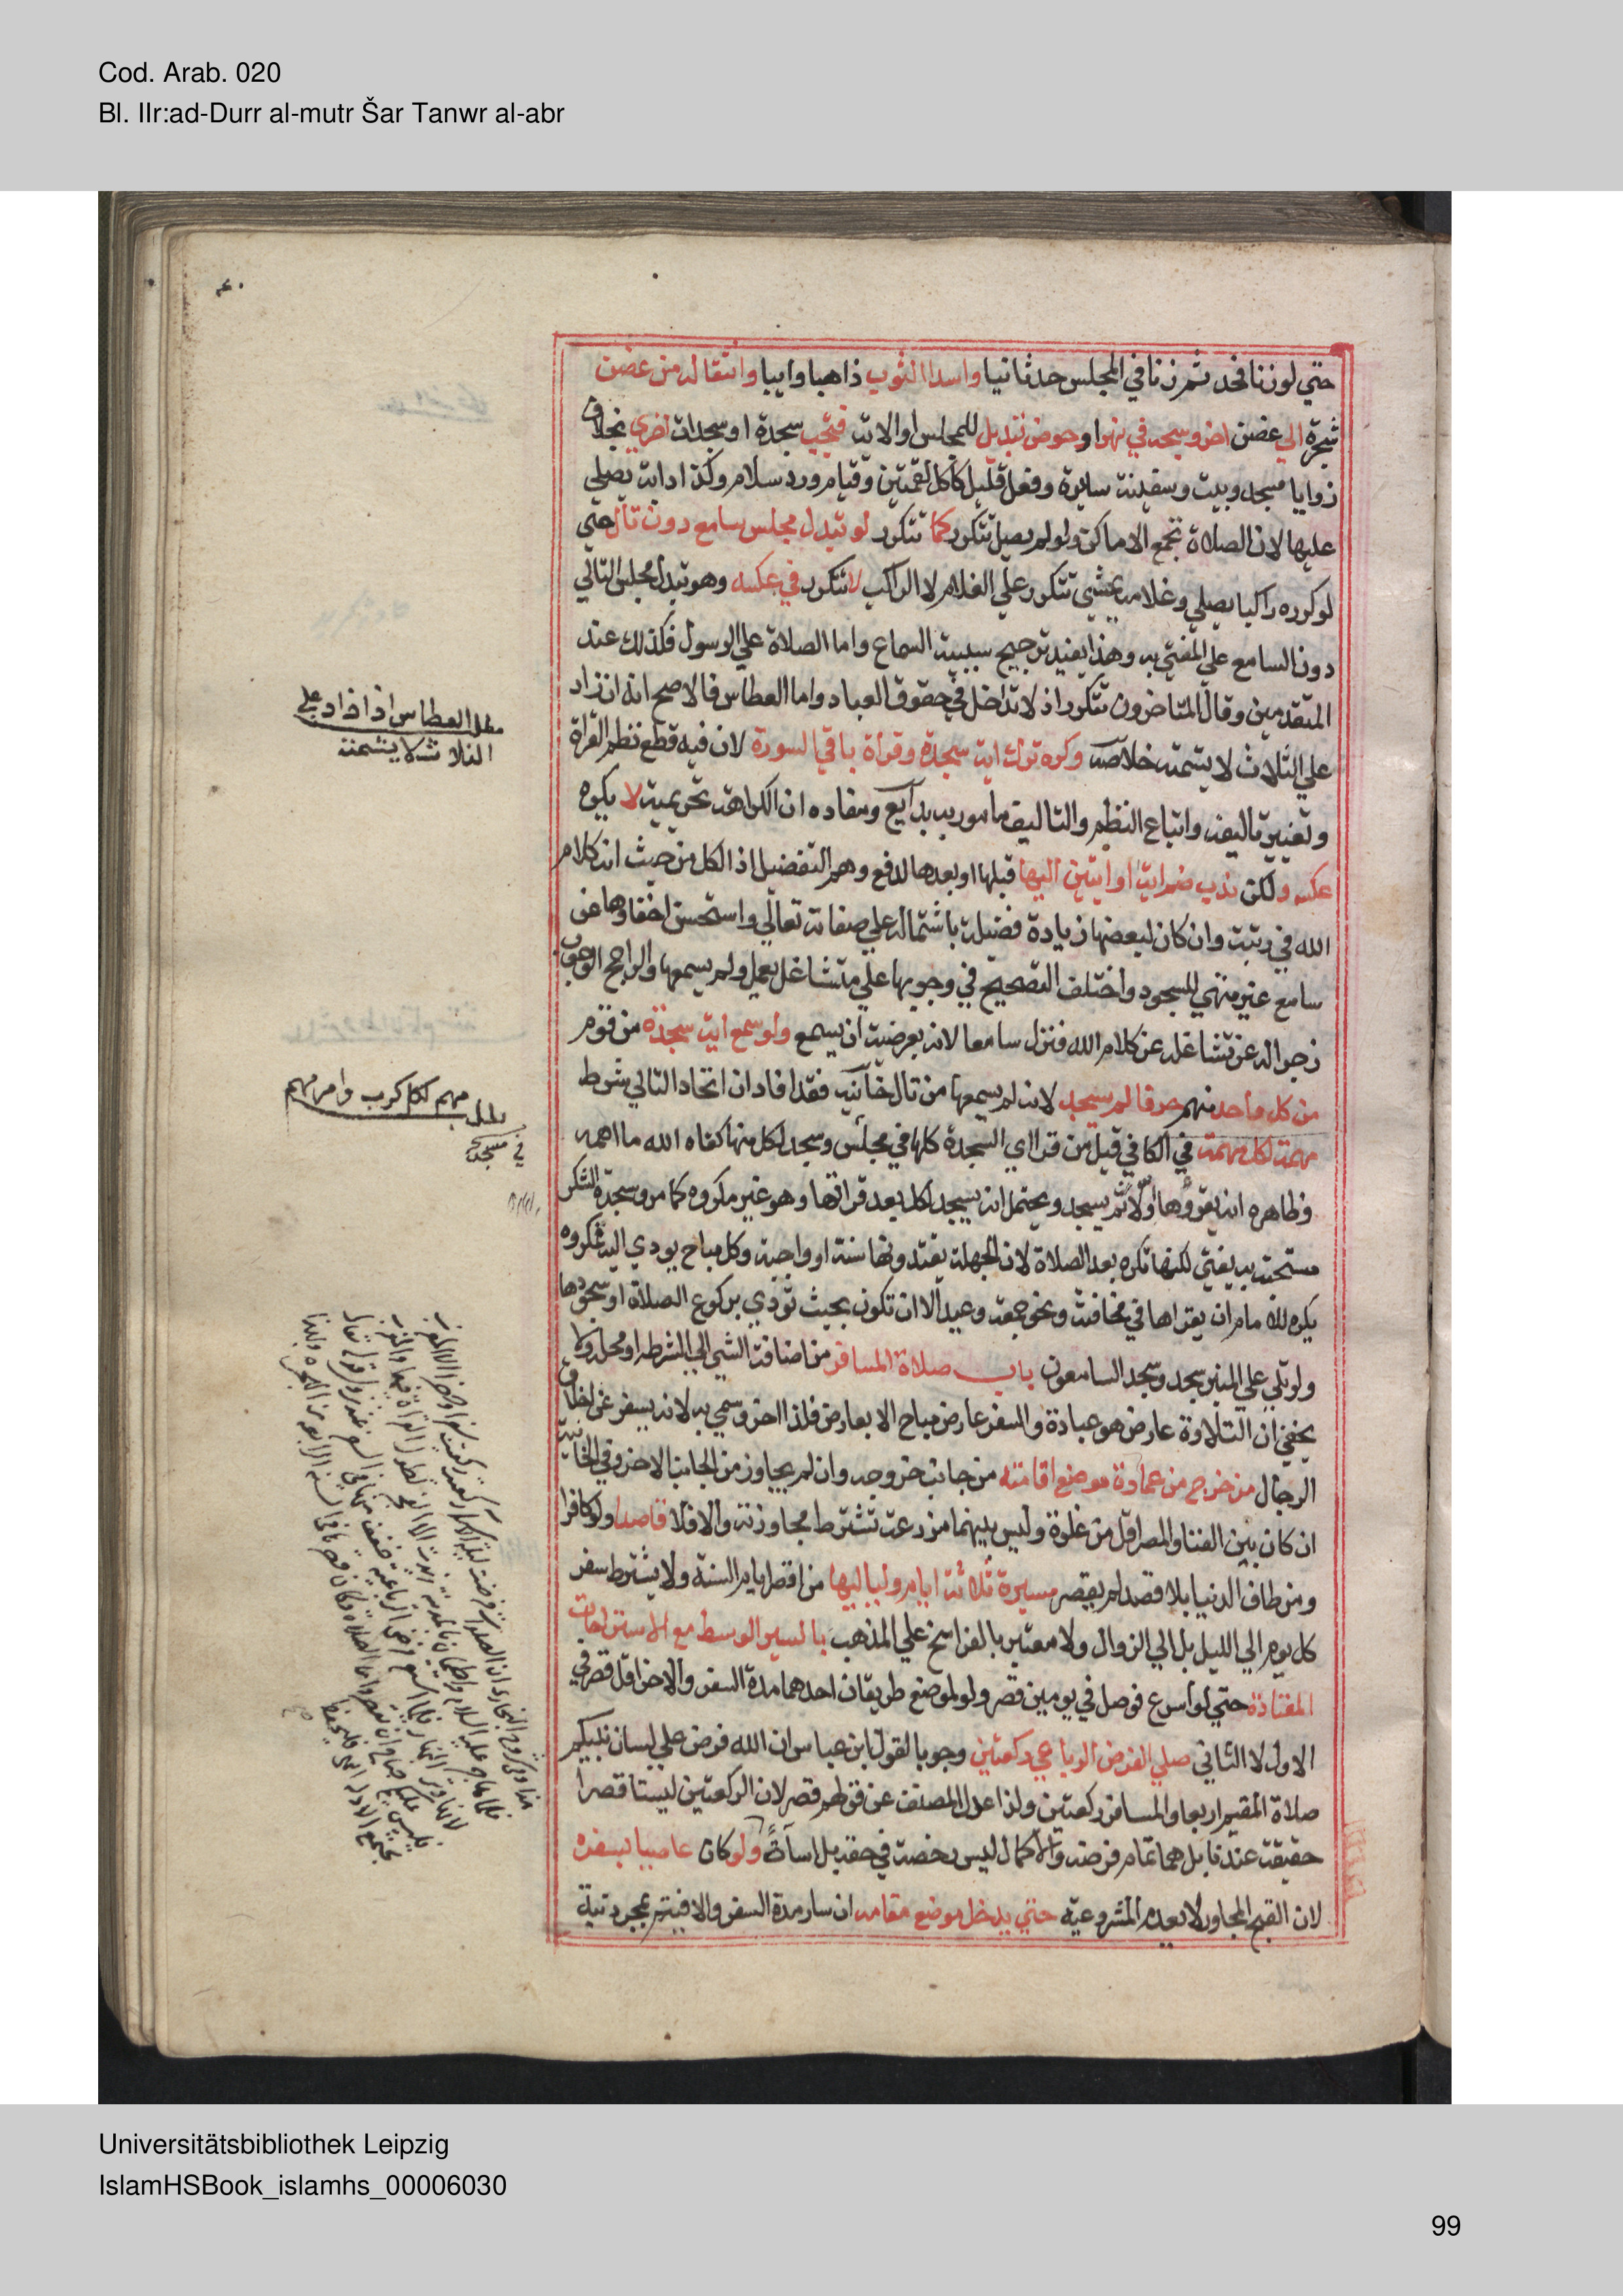 Cod. Arab. 020
Bl. IIr:ad-Durr al-mutr Šar Tanwr al-abr
حتي لو زنا فحد ثم زنا في المجلس حد ثانيا واسدا الثوب ذاهبا وايبا وانتقاله من غصن
شجرة الي غصن اخر وسبحه في نهر او حوض تبديل للمجلس او الاية فتجب سجدة او سجدات اخري بخلاف
زوايا مسجد وبيت وسفينة سايرة وفعل قليل كاكل لقمتين وقيام ورد سلام وكذا دابة يصلي
عليها لان الصلاة تجمع الاماكن ولو لم يصل تتكرر كما تتكرر لو تبدل مجلس سامع دون تال حتي
لو كرره راكبا يصلي وغلامه يمشي تتكرر علي الغلام لا الراكب لا تتكرر في عكسه وهو تبدل مجلس التالي
دون السامع علي المفتي به وهذا يفيد ترجيح سببية السماع واما الصلاة علي الرسول فكذلك عند
المتقدمين وقال المتاخرون تتكرر اذ لا تداخل في حقوق العباد واما العطاس فالاصح انه ان زاد
علي الثلاث لا يشمته خلاصه وكره ترك اية سجدة وقراة باقي السورة لان فيه قطع نظم القراة
وتغيير تاليفه واتباع النظم والتاليف مامور به بدايع ومفاده ان الكراهة تحريمية لا يكره
عكسه ولكن ندب ضم اية او ايتين اليها قبلها او بعدها لدفع وهم التفضيل اذ الكل من حيث انه كلام
الله في رتبة وان كان لبعضها زيادة فضيلة باشتماله علي صفاته تعالي واستحسن اخفاوها عن
سامع غير متهي للسجود واختلف التصحيح في وجوبها علي متشاغل بعمل ولم يسمعها والراجح الوجوب
زجرا له عن تشاغله عن كلام الله فنزل سامعا لانه بعرضية ان يسمع ولو سمع اية سجدة من قوم
من كل واحد منهم حرفا لم يسجد لانه لم يسمعها من تال خانيه فقد افاد ان اتحاد التالي شرط
مهمة لكل مهمة في الكافي قيل من قرا اي السجدة كلها في مجلس وسجد لكل منها كفاه الله ما اهمه
وظاهره انه يقروها اولا ثم يسجد ويحتمل انه يسجد لكل بعد قراتها وهو غير مكروه كما مر وسجدة الشكر
مستحبة به يفتي لكنها تكره بعد الصلاة لان الجهلة يعتقدونها سنة او واجبة وكل مباح يودي اليه فمكروه
يكره للامام ان يقراها في مخافتة ونحو جمعة وعيد الا ان تكون بحيث تؤدي بركوع الصلاة او سجودها
ولو تلي علي المنبر سجد وسجد السامعون باب صلاة المسافر من اضافة الشي الي شرطه او محله ولا
يخفي ان التلاوة عارض هو عبادة والسفر عارض مباح الا بعارض فلذا اخر وسمي به لانه يسفر عن اخلاق
الرجال من خرج من عمارة موضع اقامته من جانب خروجه وان لم يجاوز من الجانب الاخر وفي الخانية
ان كان بين الفنا والمصر اقل من غلوة وليس بينهما مزرعة تشترط مجاوزته والا فلا قاصدا ولو كافرا
ومن طاف الدنيا بلا قصد لم يقصر مسيرة ثلاثة ايام ولياليها من اقصر ايام السنة ولا يشترط سفر
كل يوم الي الليل بل الي الزوال ولا معتبر بالفراسخ علي المذهب بالسير الوسط مع الاستراحات
المعتادة حتي لو اسرع فوصل في يومين قصر ولو لموضع طريقان احدهما مدة السفر والاخر اقل قصر في
الاول لا الثاني صلي الفرض الرباعي ركعتين وجوبا لقول ابن عباس ان الله فرض علي لسان نبيكم
صلاة المقيم اربعا والمسافر ركعتين ولذا عدل المصنف عن قولهم قصر لان الركعتين ليستا قصرا
حقيقة عندنا بل هما تمام فرضه والاكمال ليس رخصة في حقه بل اساة ولو كان عاصيا بسفره
لان القبح المجاور لا يعدم المشروعيه حتي يدخل موضع مقامه ان سار مدة السفر والا فيتم بمجرد نية
مطل العطاس اذا زاد علي
الثلاث لا يشمته
مطل مهم لكل كرب وامر مهم
Universitätsbibliothek Leipzig
IslamHSBook_islamhs_00006030
99